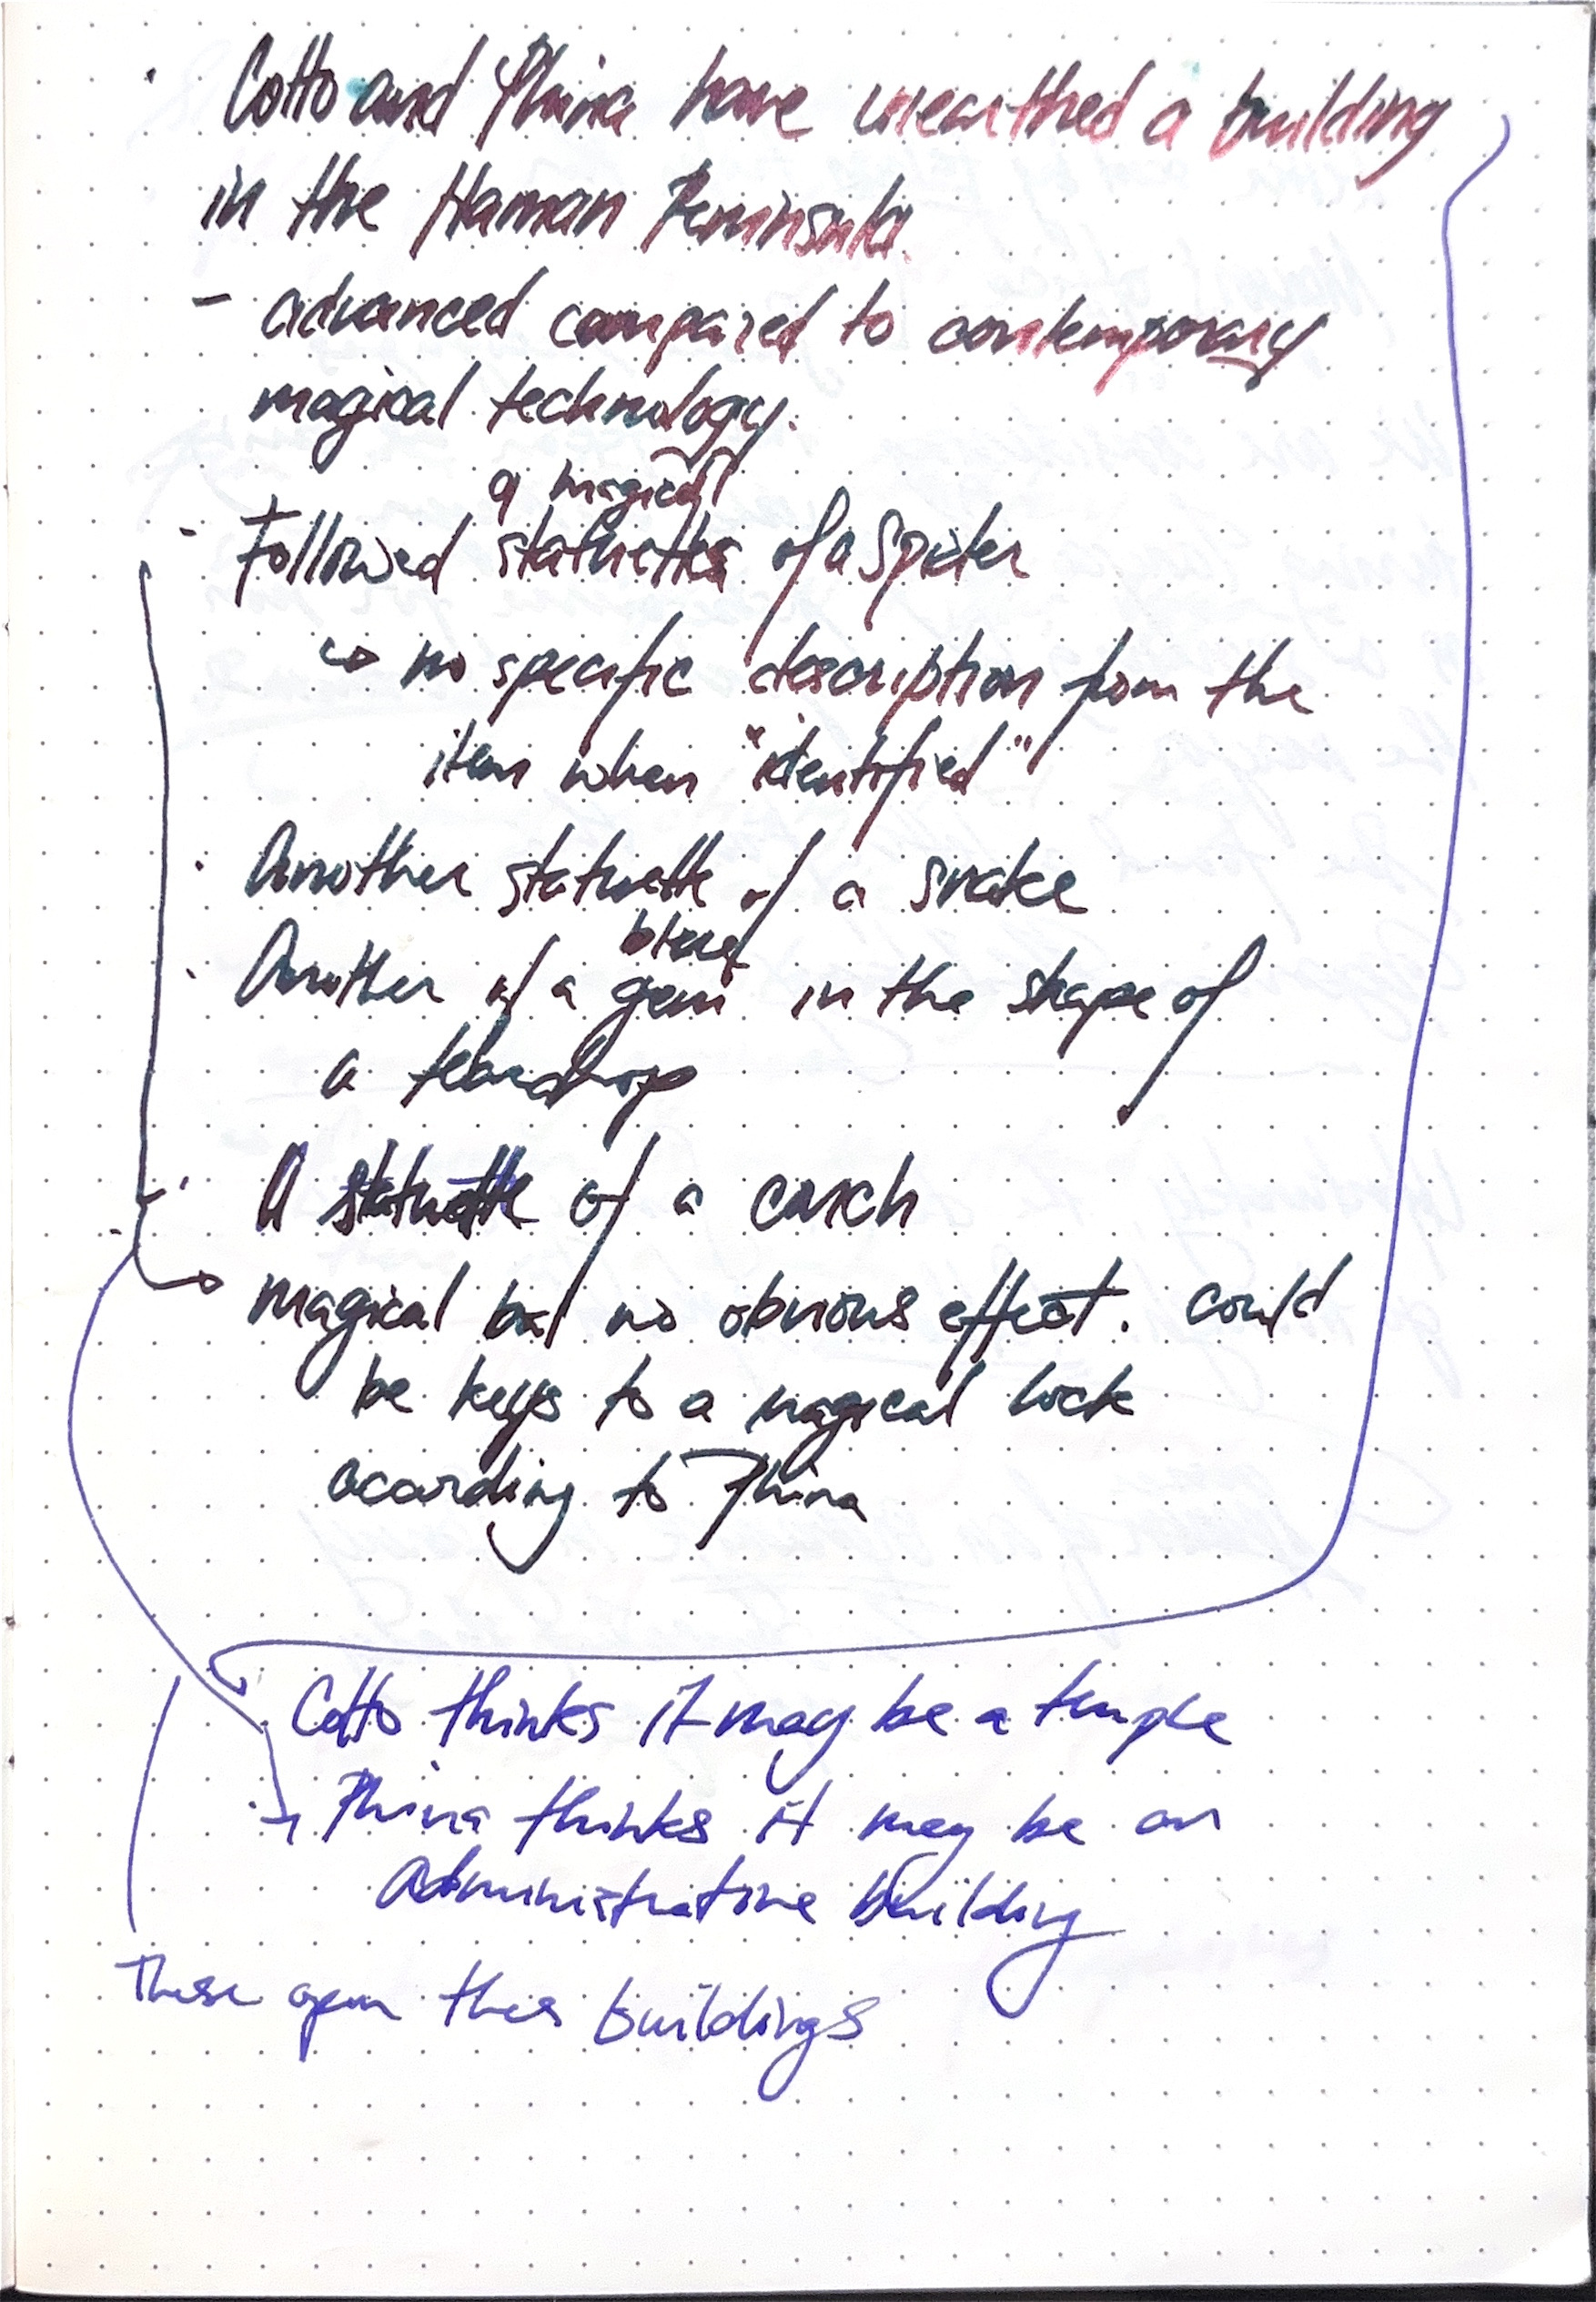 · Cotto and Phina have unearthed a building
in the Haman Peninsula.
- advanced compared to contemporary
magical technology.
a magical
· Followed statuette of a spider
↳ no specific description from the
item when "identified"
· Another statuette of a snake
blue
· Another of a gem in the shape of
a teardrop
· A statuette of a conch
→ magical but no obvious effect. could
be keys to a magical lock
acording to Phina
Cotto thinks it may be a temple
· → Phina thinks it may be an
Administrative building
These open this buildings